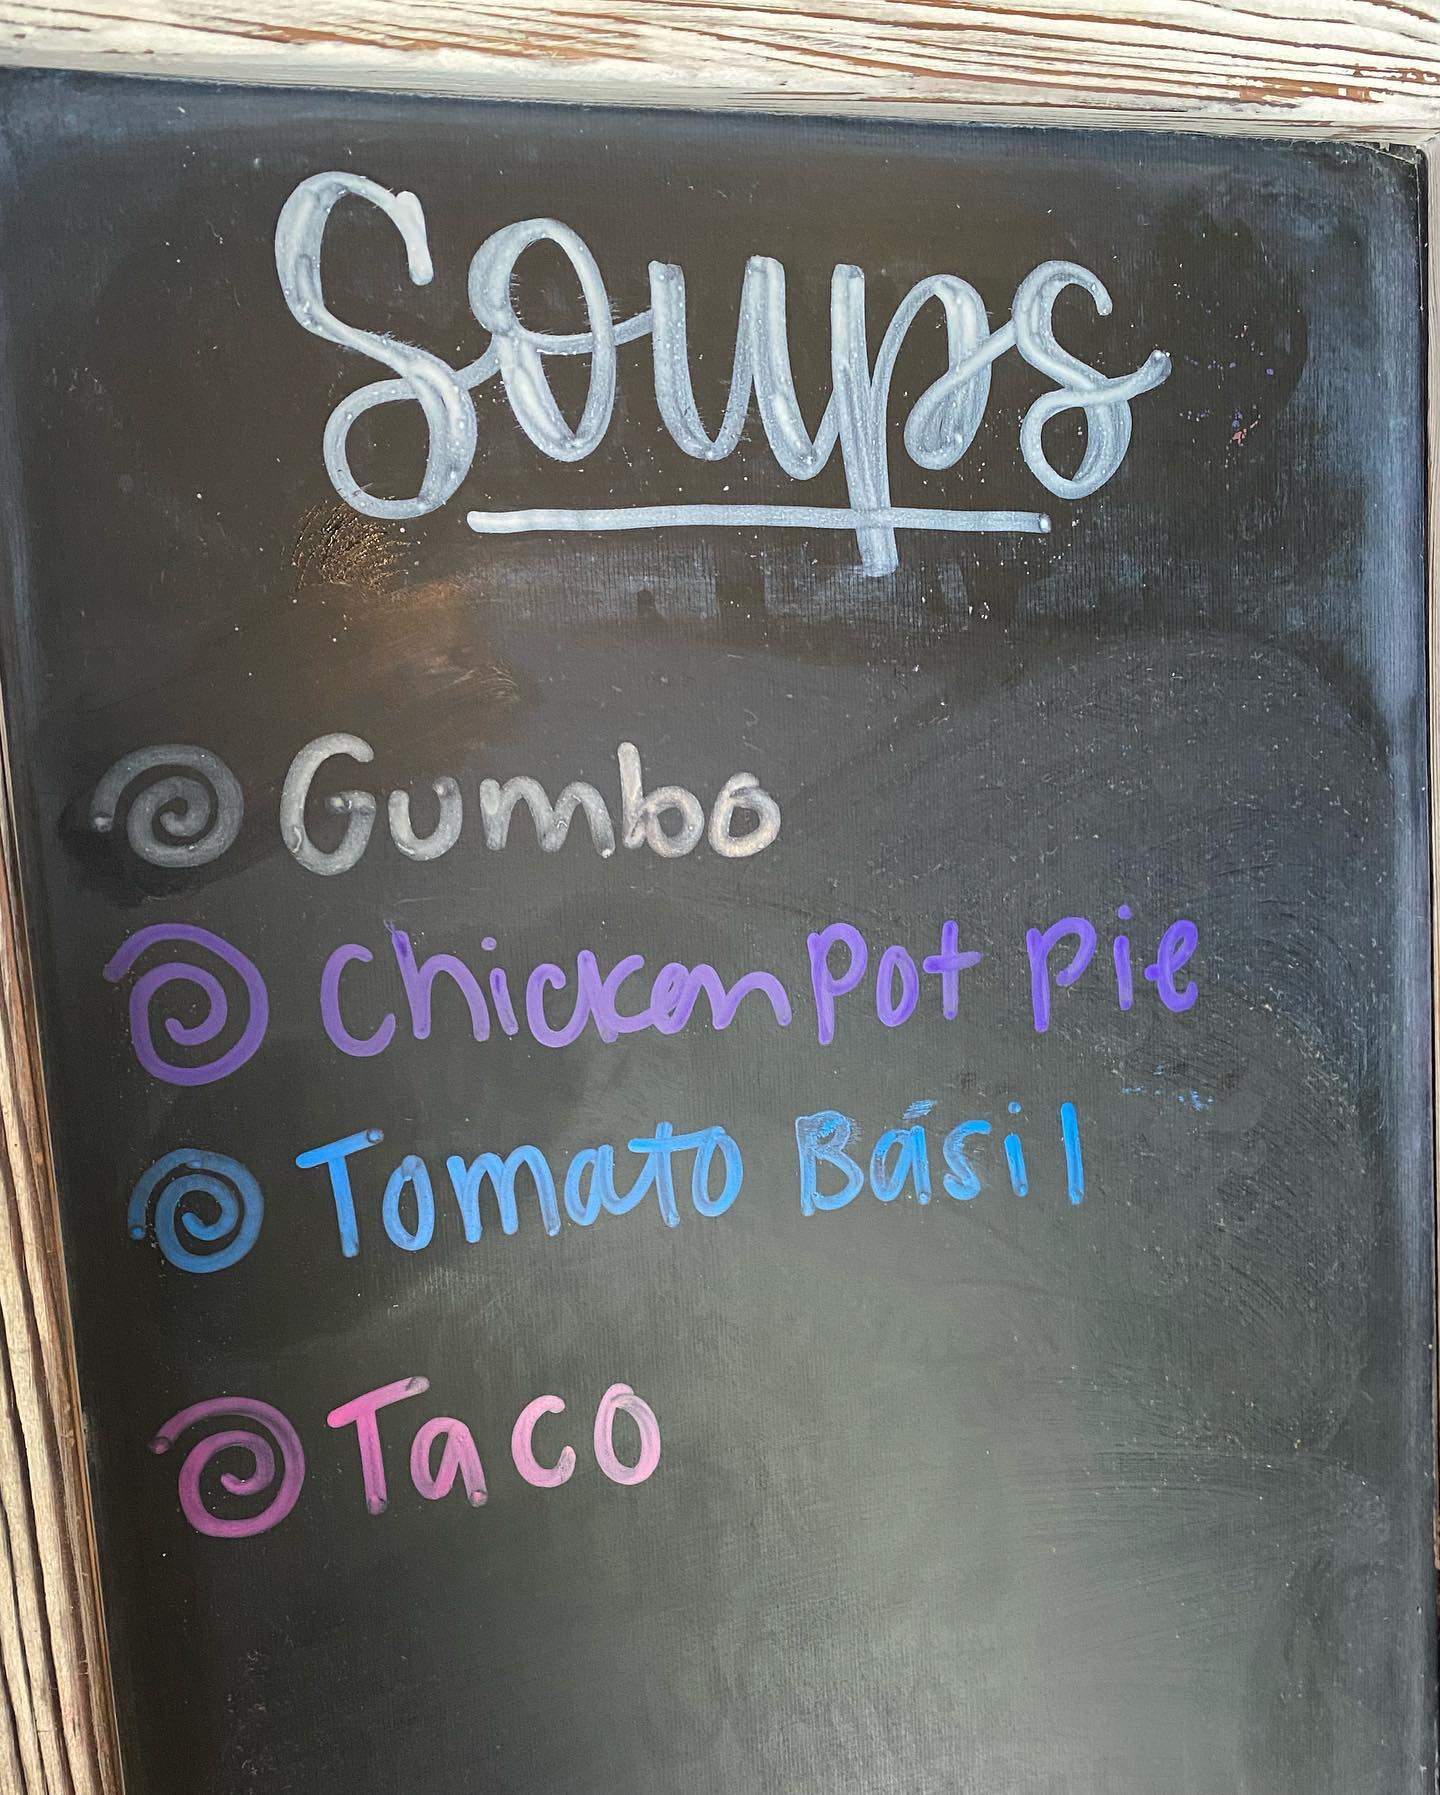 Soups
Gumbo
Chicken Pot Pie
Tomato Basil
Taco